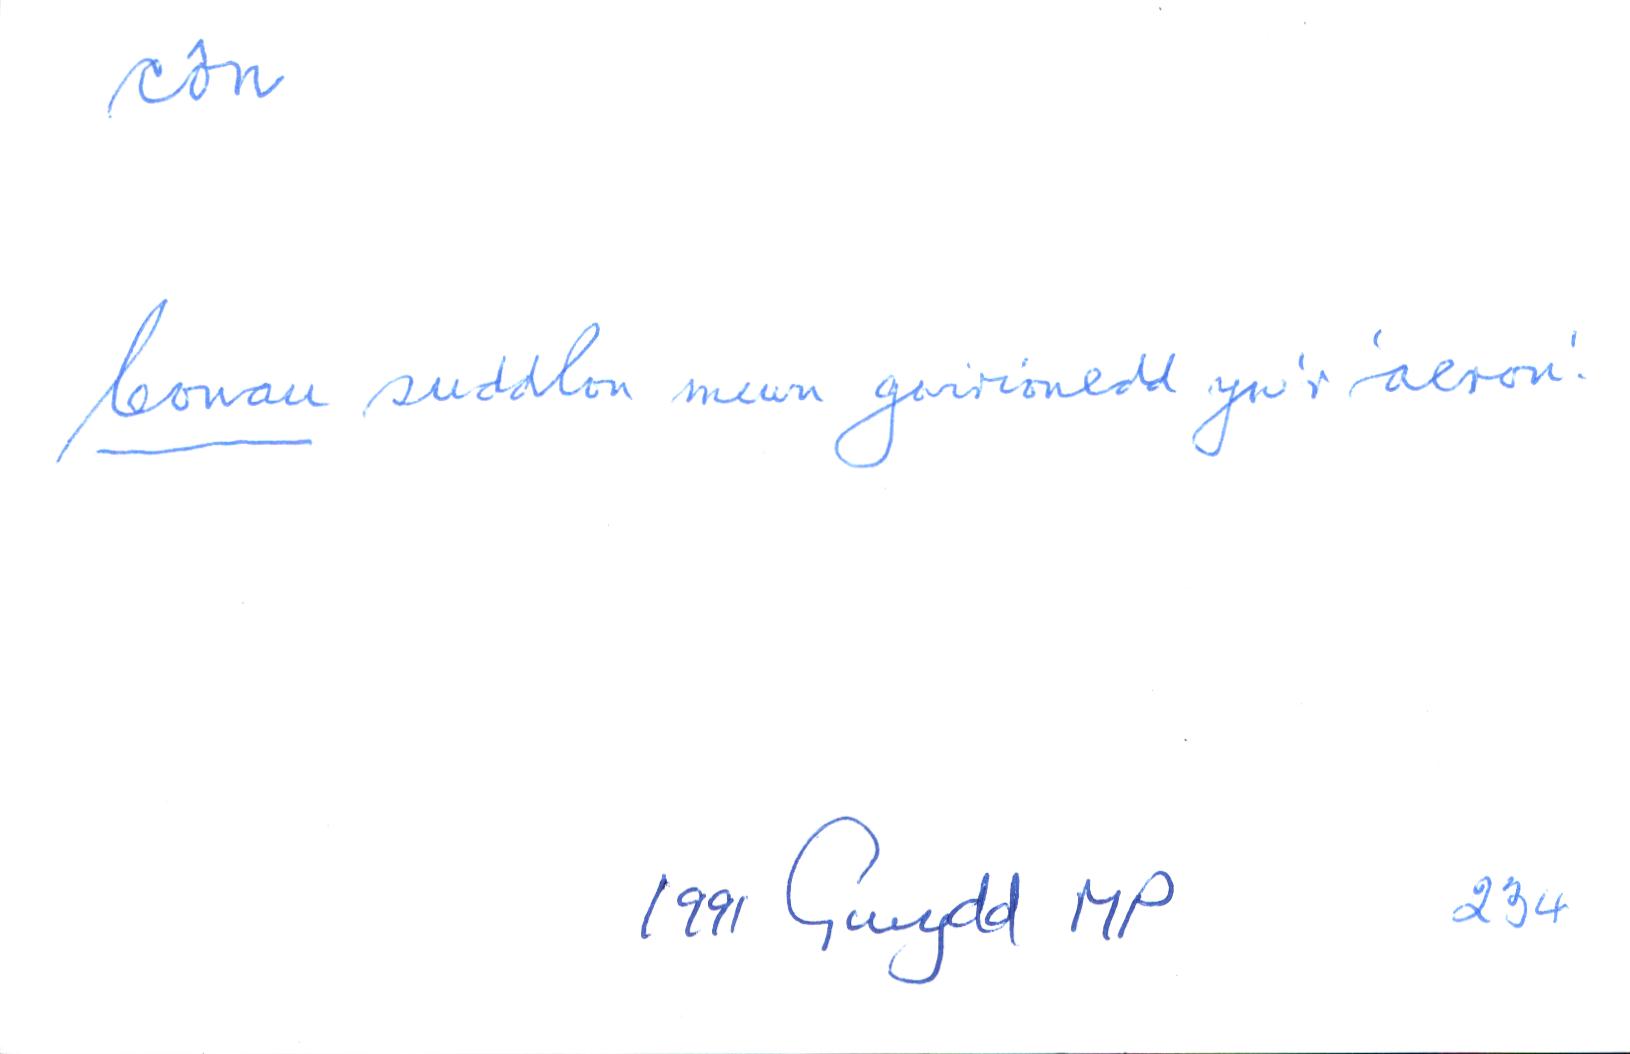 côn
Conau suddlon mewn gwirionedd yw'r 'aeron'.
1991 Gwydd MP 234